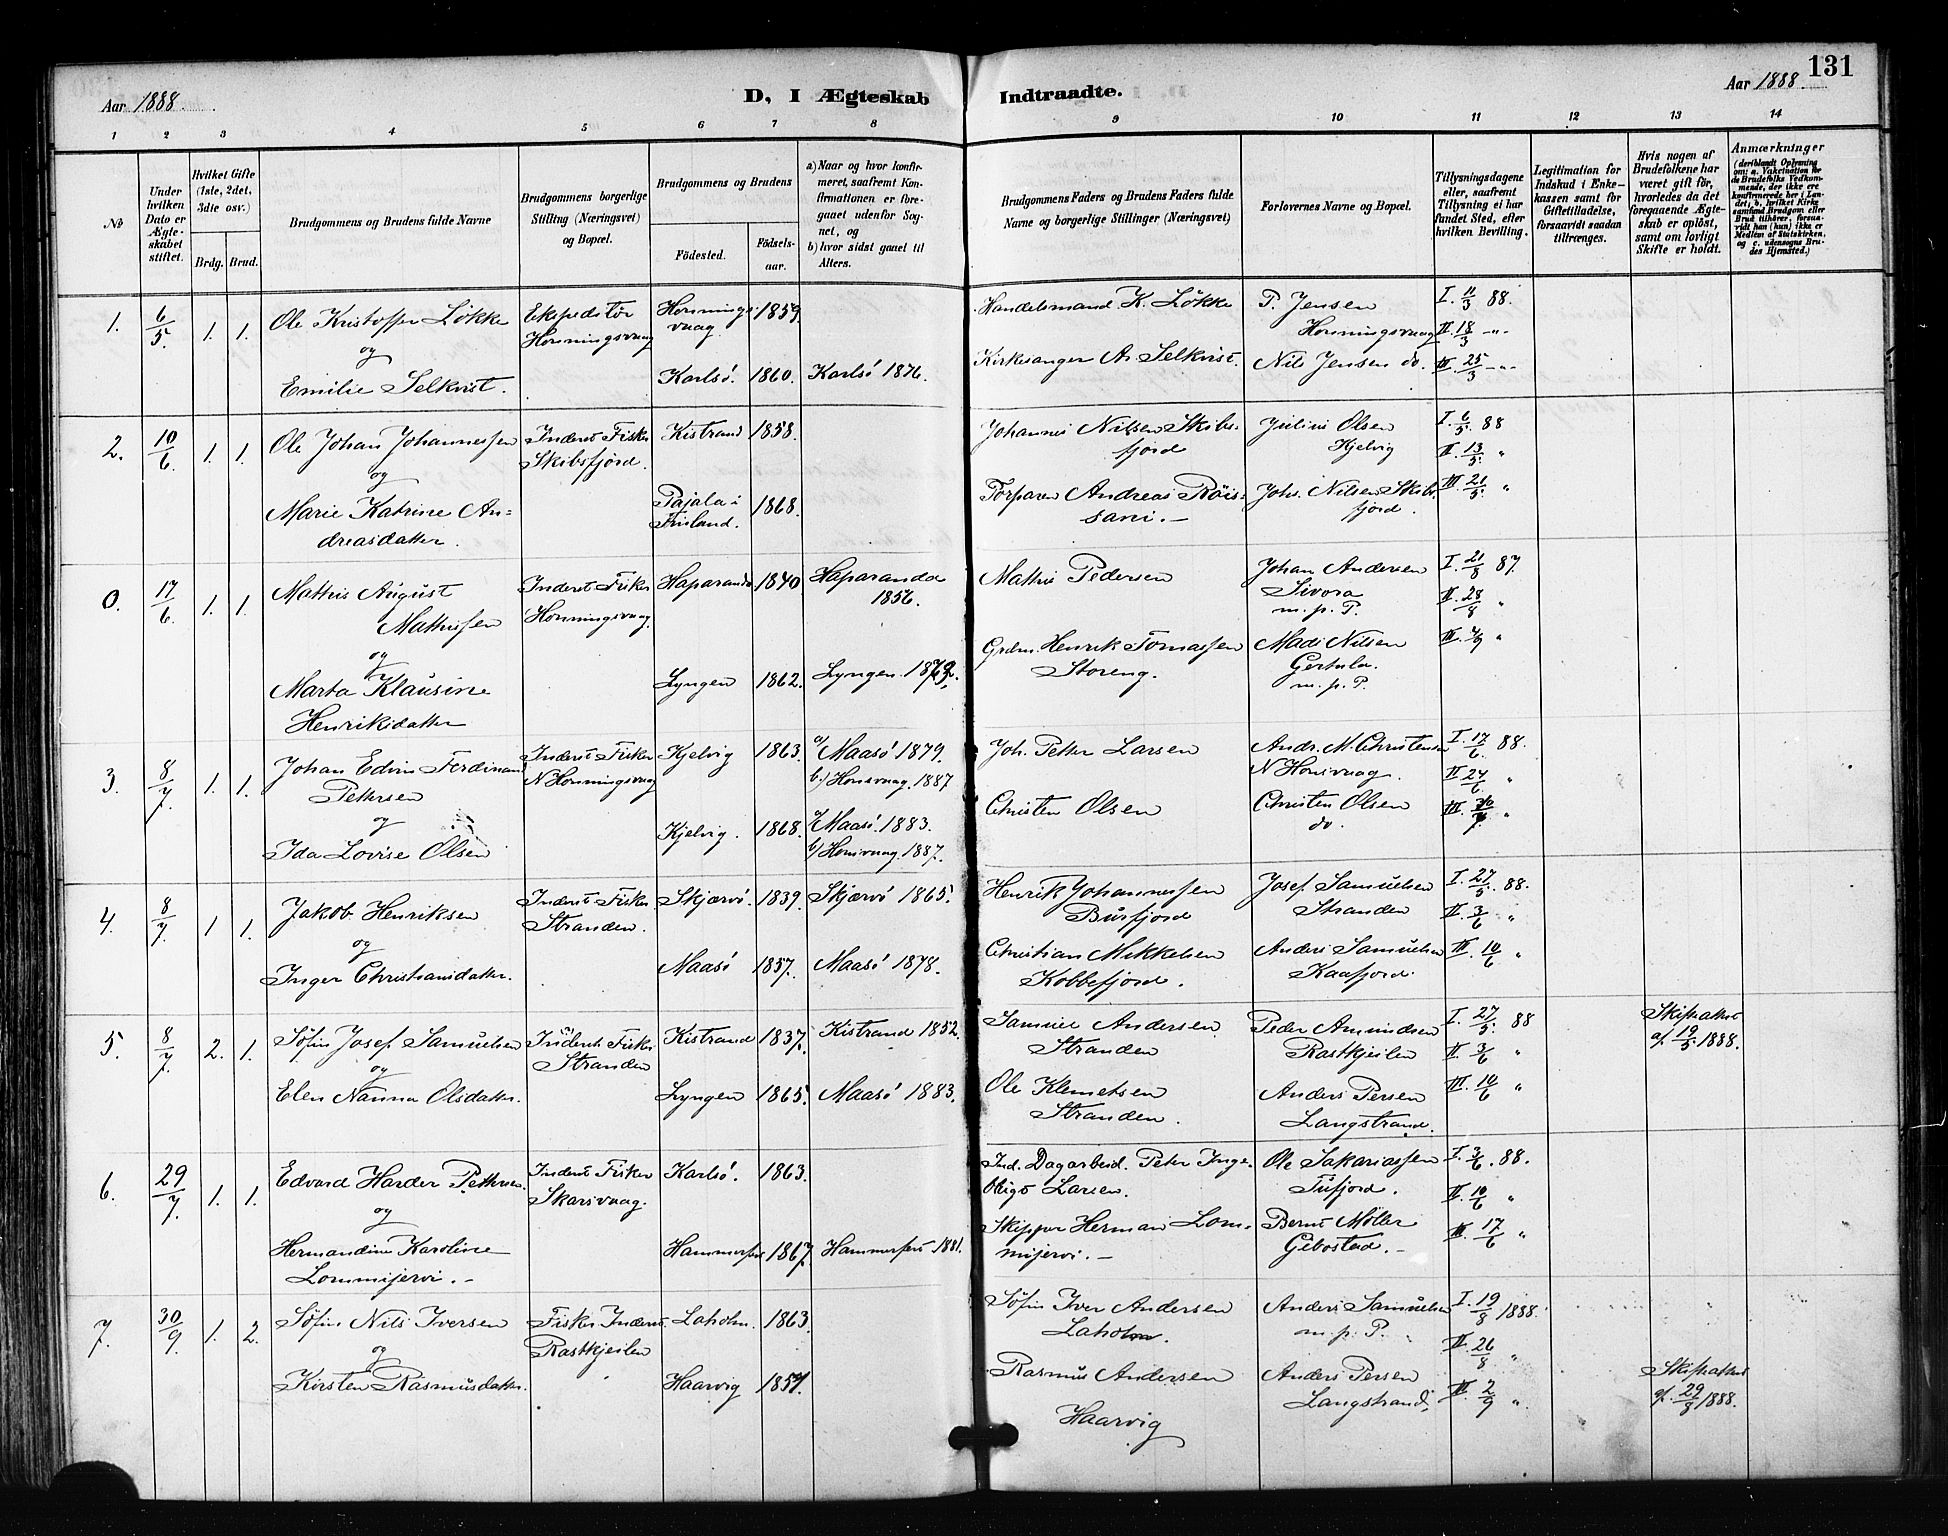 131
Aar 1888.
D, I Ægteskab Indtraadte.
Aar 1888.
1 2 3 4 5 6 7 8 9 10 11 12 13 14
No
Under hvilken Dato er Ægteskabet stiftet.
Hvilket Gifte (1ste, 2det, 3die osv.)
Brdg. Brud.
Brudgommens og Brudens fulde Navne
Brudgommens borgerlige Stilling (Næringsvei) og Bopæl.
Brudgommens og Brudens
Fødested.
Fødsels-aar.
a) Naar og hvor konfirmeret, saafremt Konfirmationen er foregaaet udenfor Sognet, og
b) hvor sidst gaaet til Alters.
Brudgommens Faders og Brudens Faders fulde Navne og borgerlige Stillinger (Næringsvei)
Forlovernes Navne og Bopæl.
Tillysningsdagene eller, saafremt Tillysning ei har fundet Sted, efter hvilken Bevilling.
Legitimation for Indskud i Enkekassen samt for Giftetilladelse, forsaavidt saadan tiltrænges.
Hvis nogen af Brudefolkene har været gift før, hvorledes da det foregaaende Ægteskab er opløst, samt om lovligt Skifte er holdt.
Anmærkninger
(deriblandt Oplysning om: a. Vakcination for de Brudefolks Vedkommende, der ikke ere konfirmerede her i Landet, b. hvilket Kirkesamfund Brudgom eller Brud tilhører, forsaavidt han (hun) ikke er Medlem af Statskirken, og c. udensogns Brudes Hjemsted.)
1. 6/5 1. 1. Ole Kristoffer Løkke
og
Emilie Selkvist.
Ekspeditør
Honningsvaag
Honningsvaag 1859.
Karlsø. 1860. Karlsø 1876.
Handelsmand K. Løkke
Kirkesanger A. Selkvist.
P. Jensen
Honningsvaag
Nils Jensen do.
I. 11/3 88.
II. 18/3 -"-
III. 25/3 -"-
2. 10/6. 1. 1. Ole Johan Johannessen
og
Marie Katrine An=
dreasdatter.
Inderst Fisker
Skibsfjord.
Kistrand 1858.
Pajala i
Finland. 1868.
Johannes Nilsen Skibs-
fjord
Torparen Andreas Röis=
sani.-
Julius Olsen
Kjelvig
Johs. Nilsen Skibs-
fjord.
I. 6/5. 88
II. 13/5. "
III. 21/5. "
0. 17/6. 1. 1. Mathis August
Mathissen
og
Marta Klausine
Henriksdatter
Inderst Fisker
Honningsvaag.
Haparanda 1840 Haparanda
1856.
Lyngen 1862. Lyngen.
Mathis Pedersen
Grdm. Henrik Tomassen
Storeng.
Johan Andersen
Sivora
m. p. P.
Mads Nilsen
Gertula.
m. p. P.
I. 21/8 87.
II. 28/8 "
III. 4/9 "
3. 8/7. 1. 1. Johan Edvin Ferdinand
Pettersen
og
Ida Lovise Olsen
Inderst Fisker
N Honningsvaag
Kjelvig 1863. a/ Maasø 1879.
b./ Honsvaag. 1887
Kjelvig. 1868. a/ Maasø. 1883.
b/ Honsvaag. 1887.
Joh. Petter Larsen
Christen Olsen
Andr. M. Christensen
N Honsvaag.
Christen Olsen
do.
I. 17/6 88.
II. 24/6 "
III. "
4. 8/7. 1 1. Jakob Henriksen
og
Inger Christiansdatter.
Inderst Fisker
Stranden.
Skjærvø. 1839. Skjærvø 1865.
Maasø 1857. Maasø 1878.
Henrik Johannessen
Burfjord
Christian Mikkelsen
Kobbefjord.
Josef Samuelsen
Stranden
Anders Samuelsen
Kaafjord.
I. 27/5. 88.
II. 3/6 "
III. 10/6 "
5. 8/7. 2. 1. Søfin Josef Samuelsen
og
Elen Nanna Olsdatter.
Inderst Fisker
Stranden
Kistrand 1837. Kistrand 1852.
Lyngen 1865. Maasø 1883.
Samuel Andersen
Stranden
Ole Klemetsen
Stranden.
Peder Amundsen
Rastkjeilen
Anders Persen
Langstrand.
I. 27/5. 88
II. 3/6 "
III. 10/6 "
Skifteattest
af. 19/5 1888.
6. 29/7. 1. 1. Edvard Harder Pettersen.
og
Hermandine Karoline
Lommijervi.-
Inderst Fisker
Skarsvaag.
Karlsø. 1863.
Hammerfest 1867. Hammerfest 1881.
Ind. Dagarbeid. Peter Inge-
brigt Larsen.
Skipper Herman Lom-
mijervi.-
Ole Sakariassen
Tufjord.
Bernt Møller
Gibostad.-
I. 3/6. 88.
II. 10/6 "
III. 17/6 "
7. 30/9. 1. 2. Søfin Nils Iversen
og
Kirsten Rasmusdatter.
Fisker Inderst.
Rastkjeilen
Laholm. 1863.
Haarvig 1857.
Søfin Iver Andersen
Laholm.
Rasmus Andersen
Haarvig
Anders Samuelsen
m. p. P.
Anders Persen
Langstrand.
I. 19/8 1888.
II. 26/8 "
III. 2/9 "
Skifteattest
af. 29/8 1888.